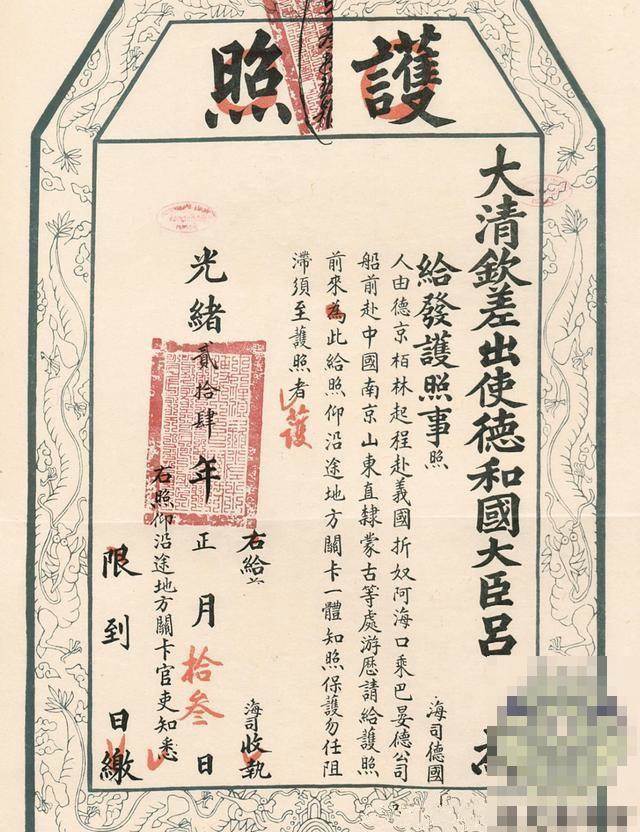 護照
大清欽差出使德和國大臣呂
給發護照事照 海司德國
人由德京栢林起程赴義國折奴阿海口乘巴晏德公司
船前赴中國南京山東直隸蒙古等處游歷請給護照
前來為此給照仰沿途地方關卡一體知照保護勿任阻
滯須至護照者 護
右給 海司收執
光緒貳拾肆年正月拾叁日
右照仰沿途地方關卡官吏知悉
限到 日繳